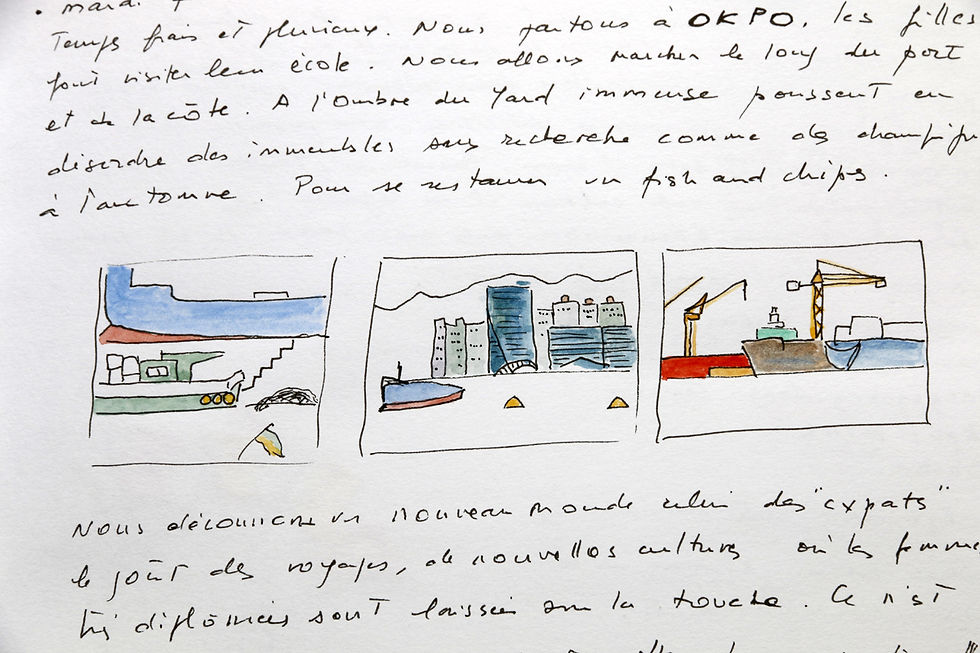 • mardi
Temps frais et pluvieux. Nous partons à OKPO, les filles
font visiter leur école. Nous allons marcher le long du port
et de la côte. A l'ombre du Yard immense poussent en
désordre des immeubles sans recherche comme des
à l'automne. Pour se restaurer un fish and chips.
Nous découvrons un nouveau monde celui des "expats"
le goût des voyages, de nouvelles cultures où les femme
très diplômées sont laissées sur la touche. Ce n'est